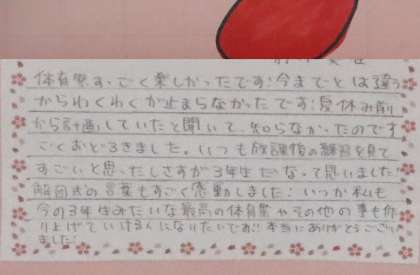 体育祭すっごく楽しかったです!今までとは違う
からわくわくが止まらなかったです!夏休み前
から計画していたと聞いて、知らなかったのですご
くおどろきました。いつも放課後の練習を見て
すごいと思ったしさすが3年生だなって思いました!
解団式の言葉もすごく感動しました!いつか私も
今の3年生みたいな最高の体育祭やその他の事も作
り上げていける人になりたいです!本当にありがとうござい
ました!